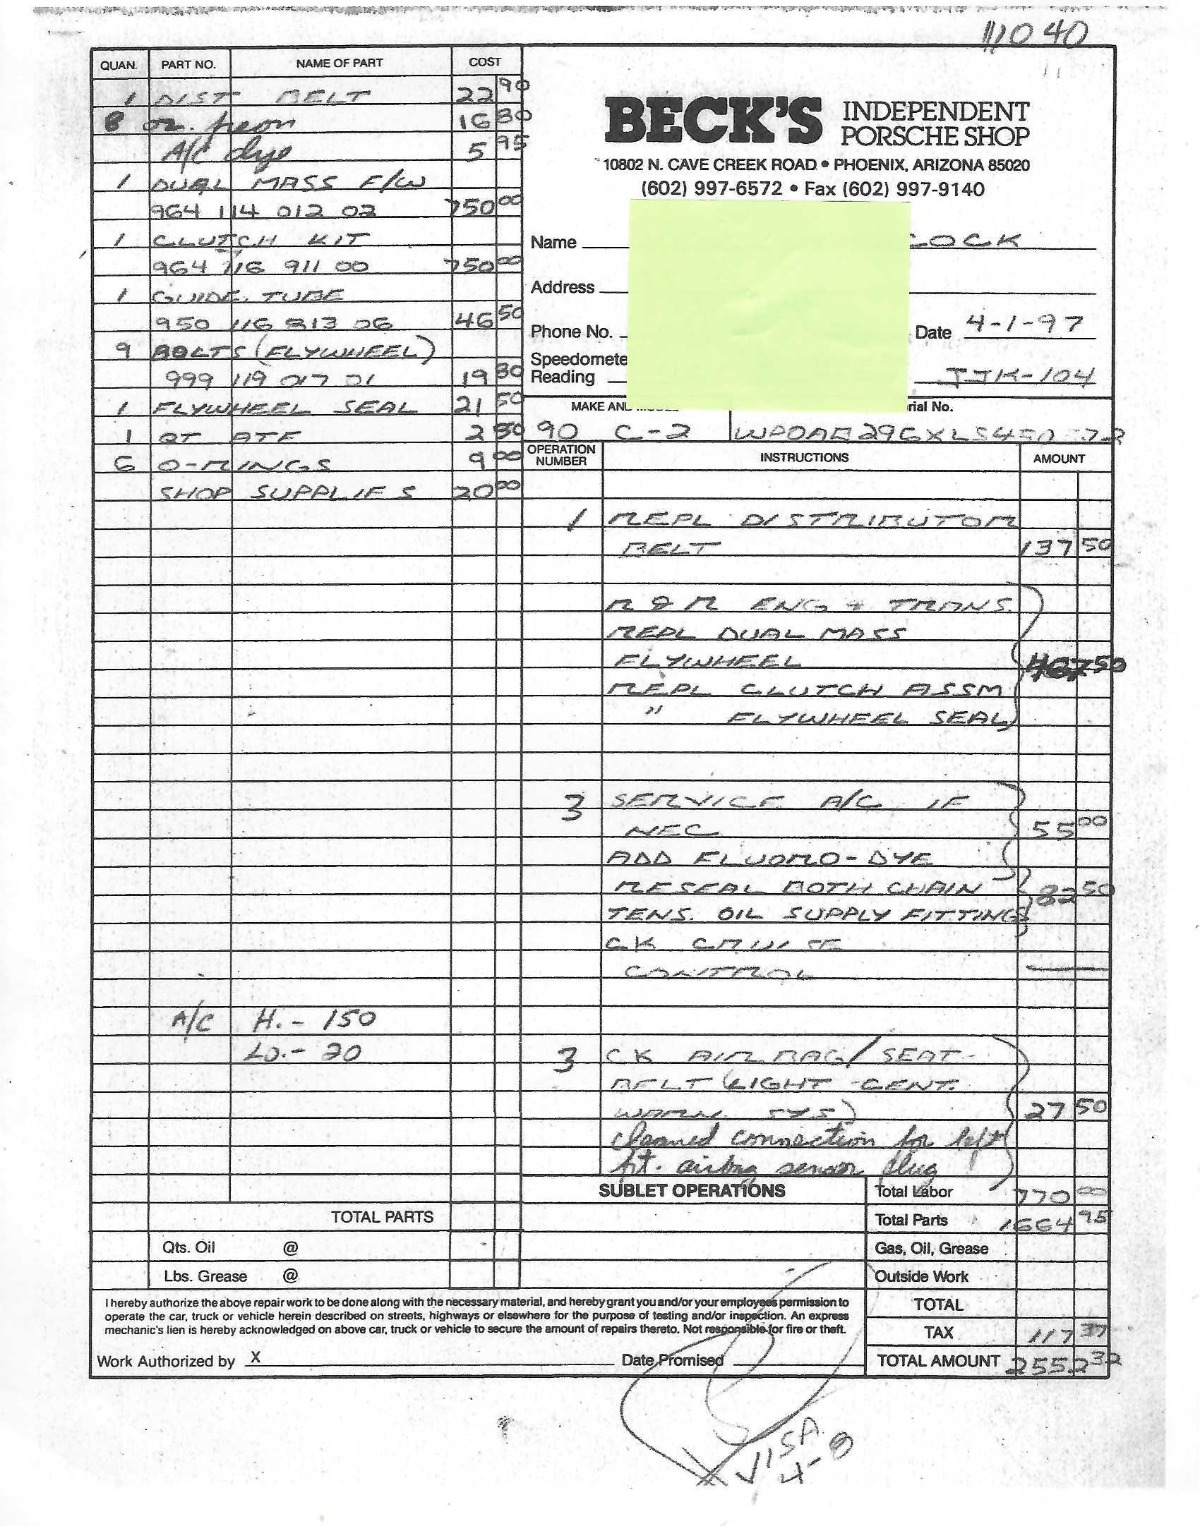 11040
QUAN. PART NO. NAME OF PART COST
1 DIST BELT 22 90
8 oz. freon 16 80
A/C dye 5 95
1 DUAL MASS F/W
964 114 012 02 750 00
1 CLUTCH KIT
964 116 911 00 750 00
1 GUIDE TUBE
950 116 813 06 46 50
9 BOLTS (FLYWHEEL)
999 119 017 01 19 80
1 FLYWHEEL SEAL 21 50
1 QT ATF 2 50
6 O-RINGS 9 00
SHOP SUPPLIES 20 00
A/C H. - 150
LO. - 20
TOTAL PARTS
Qts. Oil @
Lbs. Grease @
BECK'S INDEPENDENT
PORSCHE SHOP
10802 N. CAVE CREEK ROAD • PHOENIX, ARIZONA 85020
(602) 997-6572 • Fax (602) 997-9140
Name COCK
Address
Phone No. Date 4-1-97
Speedomete
Reading JJK-104
MAKE AND rial No.
90 C-2
OPERATION NUMBER INSTRUCTIONS AMOUNT
1 REPL DISTRIBUTOR
BELT 137 50
R & R ENG + TRANS.
REPL DUAL MASS
FLYWHEEL 467 50
REPL CLUTCH ASSM
" FLYWHEEL SEAL
3 SERVICE A/C IF
NEC 55 00
ADD FLUORO-DYE
RESEAL BOTH CHAIN 82 50
TENS. OIL SUPPLY FITTINGS
CK CRUISE
CONTROL —
3 CK AIR BAG/SEAT-
BELT (LIGHT-CENT.
WARN. SYS) 27 50
cleaned connection for left
frt. airbag sensor plug
SUBLET OPERATIONS
Total Labor 770 00
Total Parts 1664 95
Gas, Oil, Grease
Outside Work
TOTAL
TAX 117 37
TOTAL AMOUNT 2552 32
I hereby authorize the above repair work to be done along with the necessary material, and hereby grant you and/or your employees permission to
operate the car, truck or vehicle herein described on streets, highways or elsewhere for the purpose of testing and/or inspection. An express
mechanic's lien is hereby acknowledged on above car, truck or vehicle to secure the amount of repairs thereto. Not responsible for fire or theft.
Work Authorized by X Date Promised
VISA
4-8